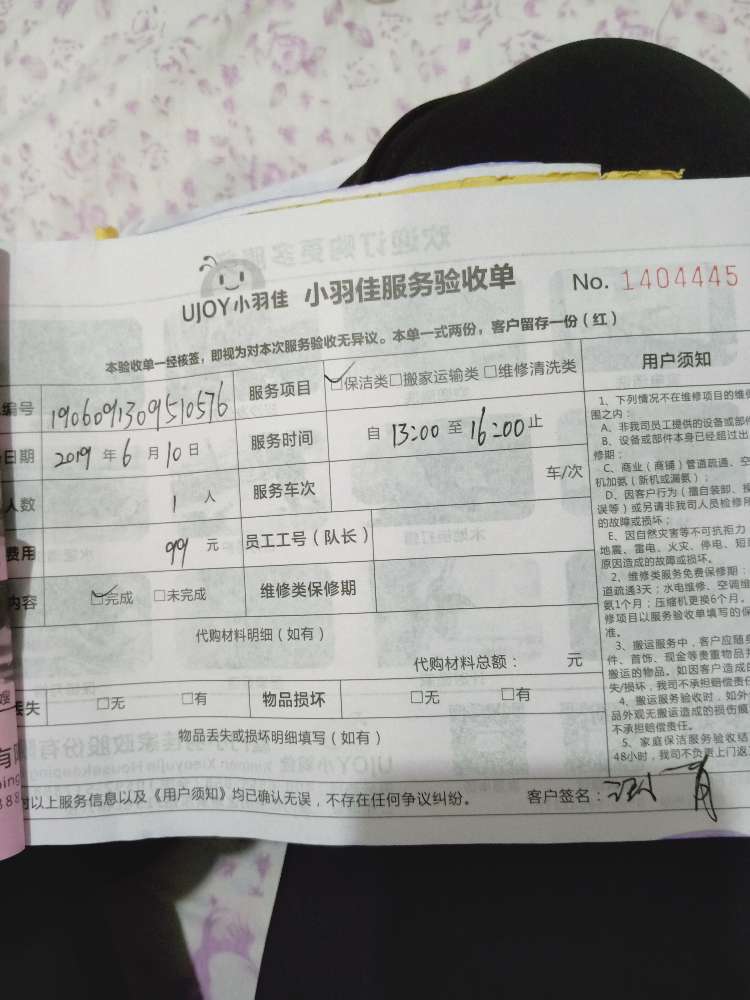 UJOY小羽佳 小羽佳服务验收单 No. 1404445
本验收单一经核签，即视为对本次服务验收无异议。本单一式两份，客户留存一份（红）
编号 1906091309510576 服务项目 □保洁类□搬家运输类□维修清洗类 用户须知
日期 2019 年 6 月 10 日 服务时间 自 13:00 至 16:00 止
人数 1 人 服务车次 车/次
费用 99 元 员工工号（队长）
内容 □完成 □未完成 维修类保修期
代购材料明细（如有）
代购材料总额： 元
丢失 □无 □有 物品损坏 □无 □有
物品丢失或损坏明细填写（如有）
以上服务信息以及《用户须知》均已确认无误，不存在任何争议纠纷。 客户签名：
1、下列情况不在维修项目的维保
围之内：
A、非我司员工提供的设备或部件
B、设备或部件本身已经超过出
修期；
C、商业（商铺）管道疏通、空
机加氨（新机或漏氨）；
D、因客户行为（擅自装卸、操
误等）或另请非我司人员检修所
的故障或损坏；
E、因自然灾害等不可抗拒力：
地震、雷电、火灾、停电、短
原因造成的故障或损坏。
2、维修类服务免费保修期：
道疏通3天；水电维修、空调维
氨1个月；压缩机更换6个月。
修项目以服务验收单填写的保
准。
3、搬运服务中，客户应随身
件、首饰、现金等贵重物品
搬运的物品。如因客户造成的
失/损坏，我司不承担赔偿责任
4、搬运服务验收时，如外
品外观无搬运造成的损伤痕
不承担赔偿责任。
5、家庭保洁服务验收结
48小时，我司不负责上门返